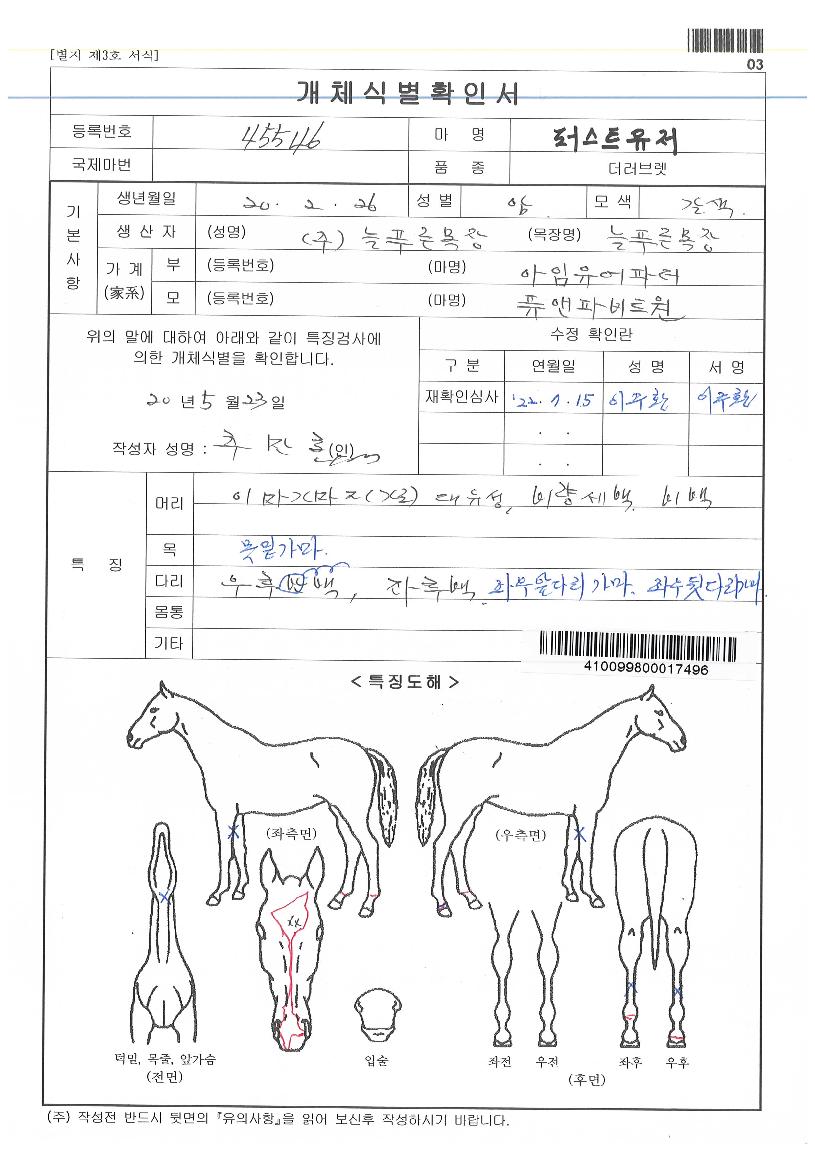 [별지 제3호 서식]
03
개체식별확인서
등록번호 45546 마 명 러스트유저
국제마번 품 종 더러브렛
기본사항
생년월일 20. 2. 26 성별 암 모색 갈색.
생산자 (성명) (주) 늘푸른목장 (목장명) 늘푸른목장
가계(家系) 부 (등록번호) (마명) 아임유어파더
모 (등록번호) (마명) 퓨앤파비트원
위의 말에 대하여 아래와 같이 특징검사에
의한 개체식별을 확인합니다.
20 년 5 월 23 일
작성자 성명 : (인)
수정 확인란
구분 연월일 성명 서명
재확인심사 '22. 7. 15 이주환 이주환
. .
. .
특 징
머리 이마가마 2(기로) 대유성, 비량세백, 비백
목 목밑가마.
다리 우후 백, 좌후백. 좌우앞다리가마. 좌우뒷다리가마
몸통
기타
410099800017496
< 특징도해 >
(좌측면) (우측면)
턱밑, 목줄, 앞가슴
(전면)
입술
좌전 우전 좌후 우후
(후면)
(주) 작성전 반드시 뒷면의 『유의사항』을 읽어 보신후 작성하시기 바랍니다.